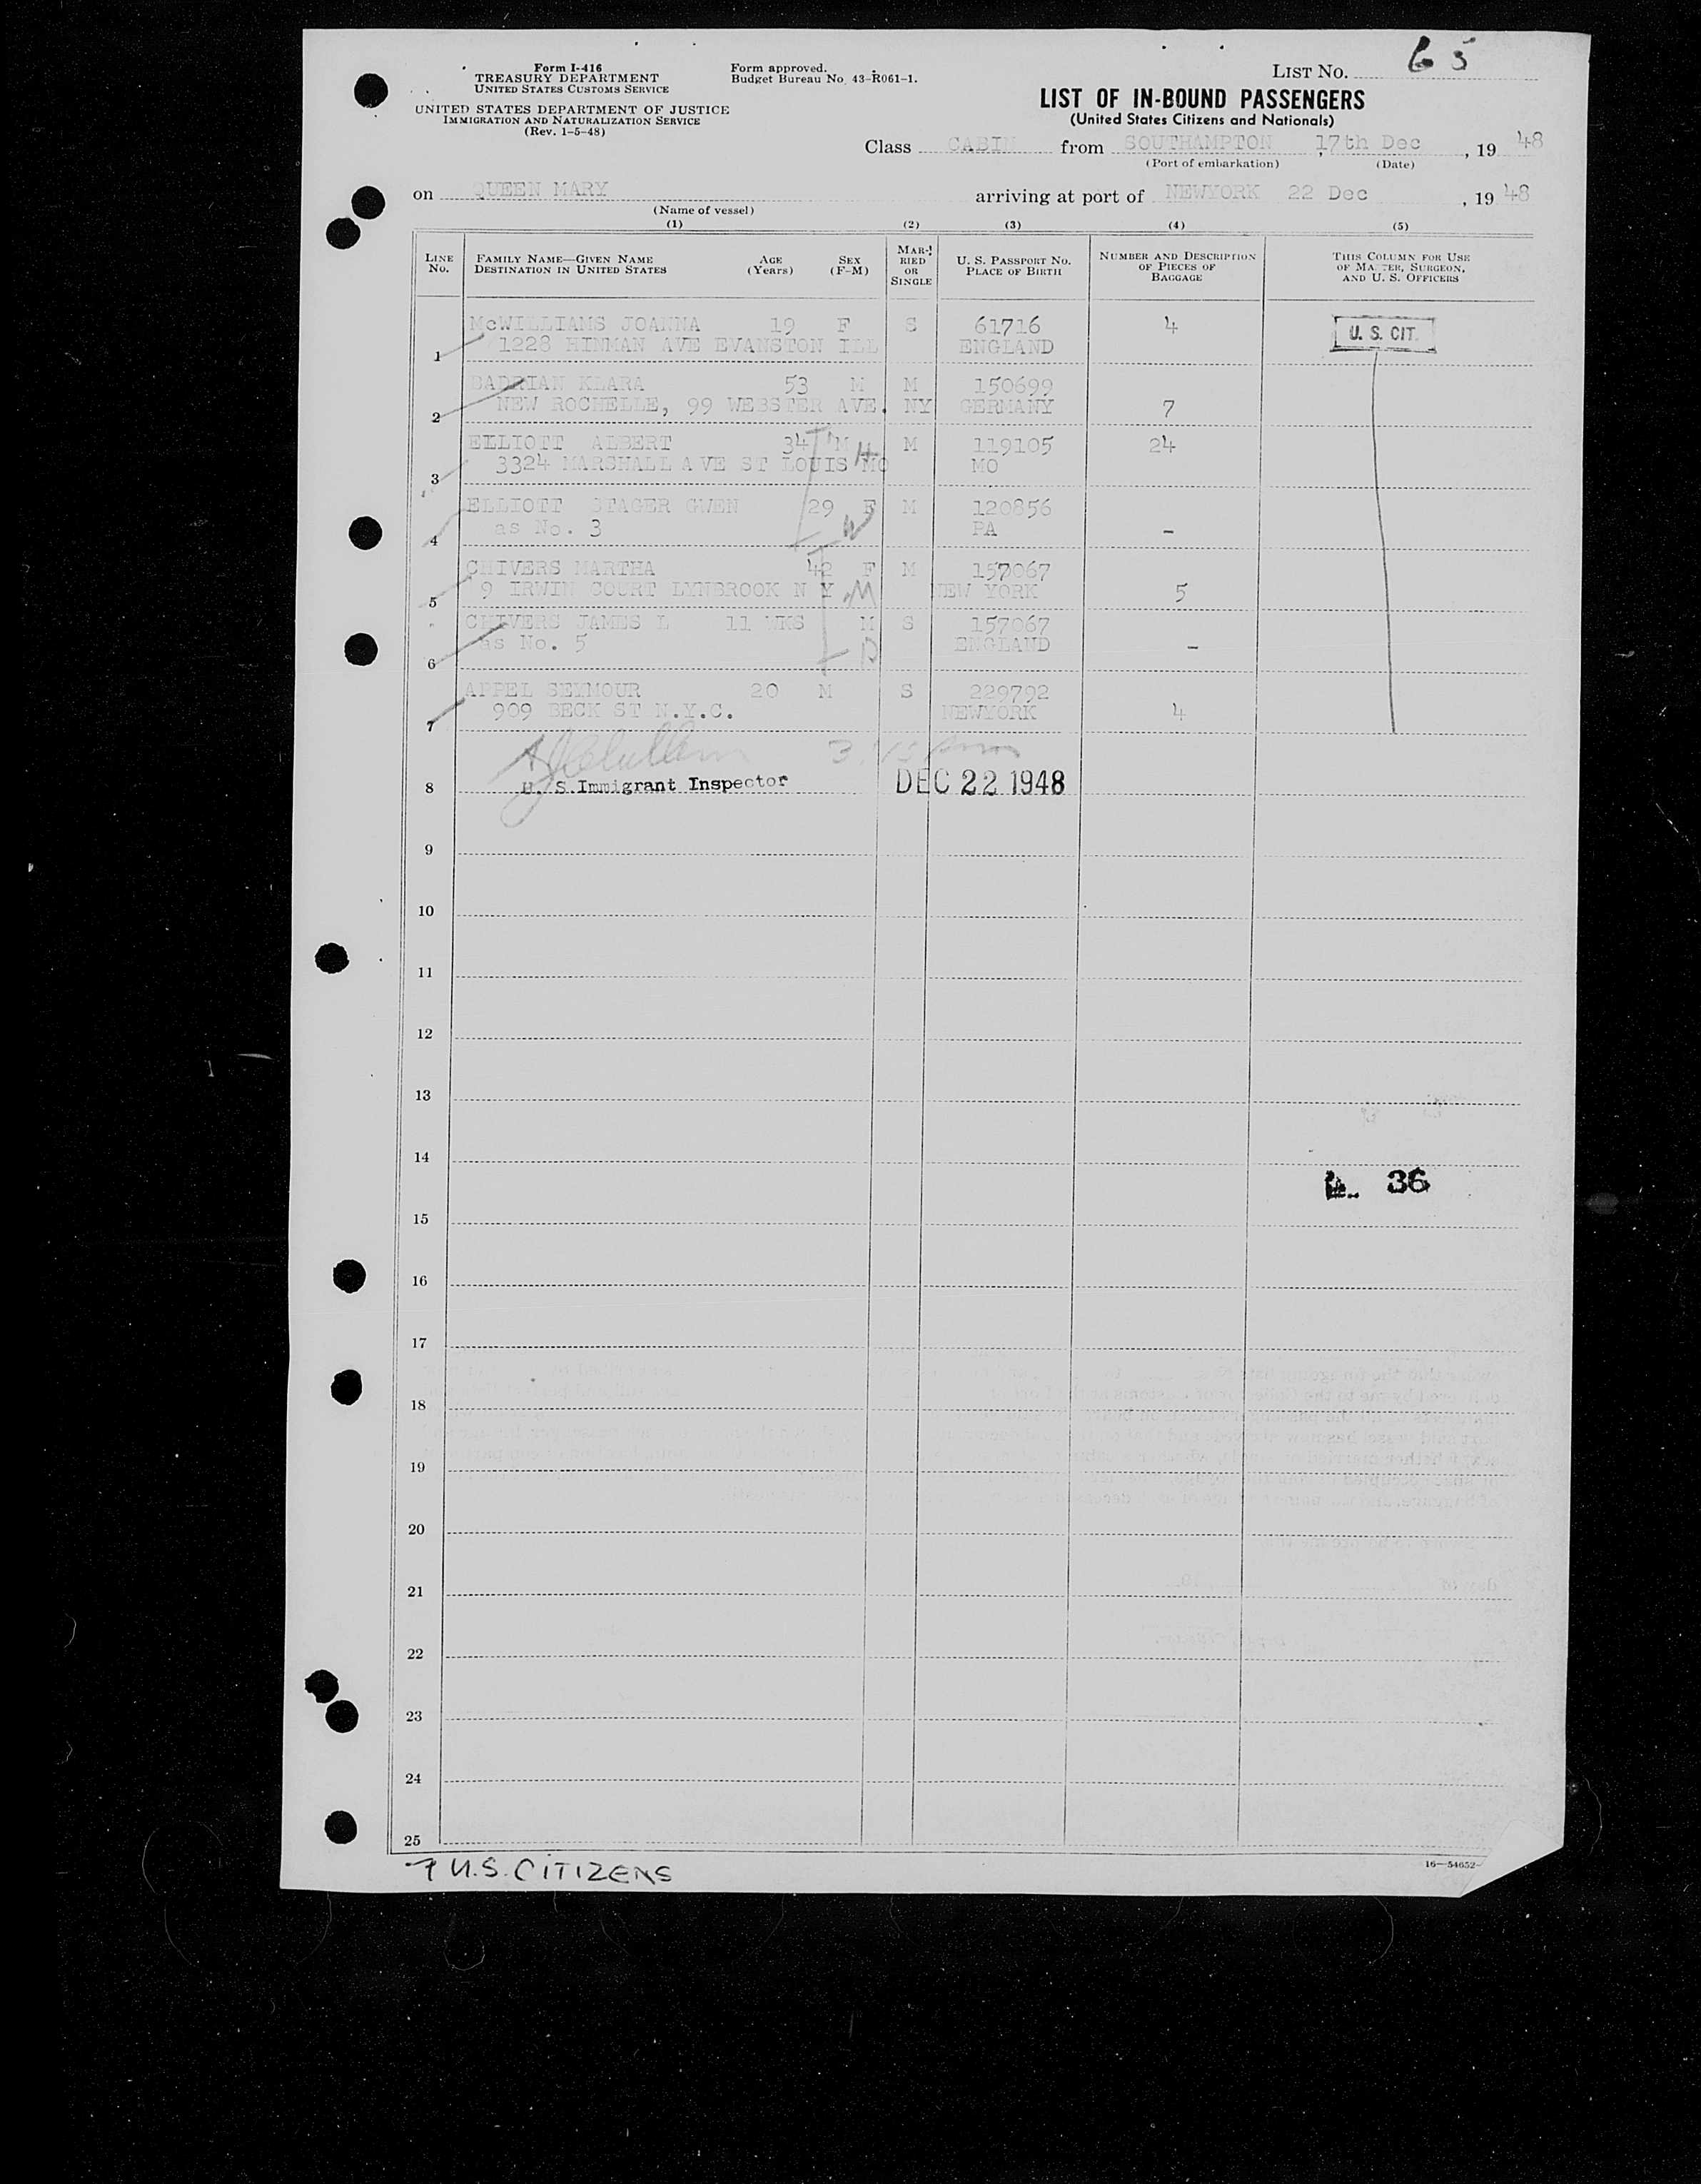 Form I-416
TREASURY DEPARTMENT
UNITED STATES CUSTOMS SERVICE
UNITED STATES DEPARTMENT OF JUSTICE
IMMIGRATION AND NATURALIZATION SERVICE
(Rev. 1-5-48)
Form approved.
Budget Bureau No. 43-R061-1.
LIST NO. 65
LIST OF IN-BOUND PASSENGERS
(United States Citizens and Nationals)
Class CABIN from SOUTHAMPTON 17th Dec, 19 48
(Port of embarkation) (Date)
on QUEEN MARY arriving at port of NEWYORK 22 Dec, 19 48
(Name of vessel)
(1) (2) (3) (4) (5)
LINE NO. FAMILY NAME—GIVEN NAME DESTINATION IN UNITED STATES AGE (Years) SEX (F-M) MARRIED OR SINGLE U. S. PASSPORT NO. PLACE OF BIRTH NUMBER AND DESCRIPTION OF PIECES OF BAGGAGE THIS COLUMN FOR USE OF MASTER, SURGEON, AND U. S. OFFICERS
McWILLIAMS JOANNA 19 F S 61716 4 U. S. CIT.
1 1228 HINMAN AVE EVANSTON ILL ENGLAND
BADRIAN KLARA 53 M M 150699
2 NEW ROCHELLE, 99 WEBSTER AVE. NY GERMANY 7
ELLIOTT ALBERT 34 M H M 119105 24
3 3324 MARSHALL AVE ST LOUIS MO MO
ELLIOTT STAGER GWEN 29 F M 120856
4 as No. 3 W PA -
CHIVERS MARTHA 42 F M 157067
5 9 IRWIN COURT LYNBROOK N Y M NEW YORK 5
CHIVERS JAMES L 11 WKS M S 157067
6 as No. 5 ENGLAND -
APPEL SEYMOUR 20 M S 229792
7 909 BECK ST N.Y.C. NEWYORK 4
8 U. S. Immigrant Inspector DEC 22 1948
9
10
11
12
13
14
36
15
16
17
18
19
20
21
22
23
24
25
7 U.S. CITIZENS
16—54652-